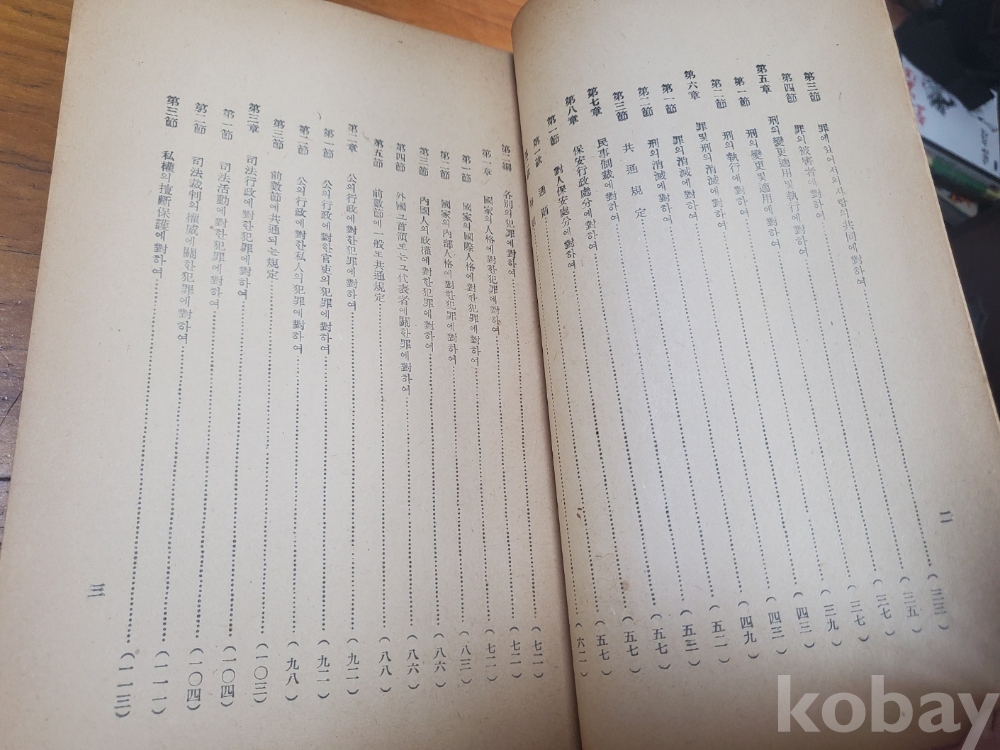 二
第三節 罪에 있어서의 사람의 共同에 對하여 (三三)
第四節 罪의 被害者에 對하여 (三五)
第五章 刑의 變更 및 適用 및 執行에 對하여 (三七)
第一節 刑의 變更 및 適用에 對하여 (三七)
第二節 刑의 執行에 對하여 (三九)
第六章 罪 및 刑의 消滅에 對하여 (四三)
第一節 罪의 消滅에 對하여 (四三)
第二節 刑의 消滅에 對하여 (四九)
第三節 共通規定 (五二)
第七章 民事制裁에 對하여 (五三)
第八章 保安行政處分에 對하여 (五七)
第一節 對人保安處分에 對하여 (五七)
第一款 通則 (五七)
(六二)
第二編 各別의 犯罪에 對하여 (七二)
第一章 國家의 人格에 對한 犯罪에 對하여 (七二)
第一節 國家의 國際人格에 對한 犯罪에 對하여 (七二)
第二節 國家의 內部人格에 對한 犯罪에 對하여 (八三)
第三節 內國人의 政權에 對한 犯罪에 對하여 (八六)
第四節 外國 그 首領 또는 그 代表者에 關한 罪에 對하여 (八六)
第五節 前數節에 一般 또 共通規定 (八八)
第二章 公의 行政에 對한 犯罪에 對하여 (九二)
第一節 公의 行政에 對한 官吏의 犯罪에 對하여 (九二)
第二節 公의 行政에 對한 私人의 犯罪에 對하여 (九八)
第三節 前數節에 共通되는 規定 (一〇三)
第三章 司法行政에 對한 犯罪에 對하여 (一〇四)
第一節 司法活動에 對한 犯罪에 對하여 (一〇四)
第二節 司法裁判의 權威에 關한 犯罪에 對하여 (一一一)
第三節 私權의 擅斷保護에 對하여 (一一三)
三
kobay